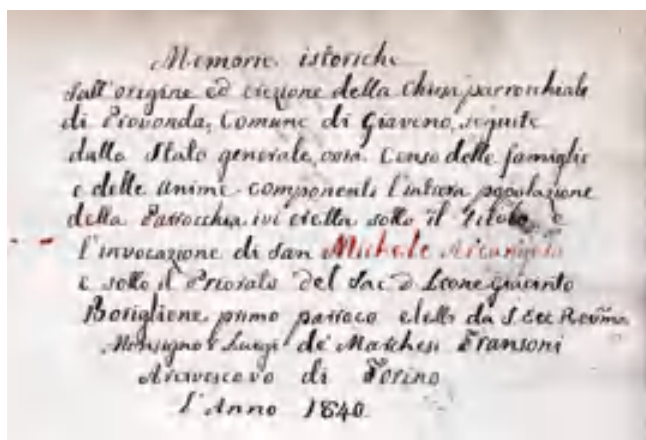 Memorie istoriche
sull'origine ed erezione della Chiesa parrochiale
di Provonda, Comune di Giaveno, seguite
dallo Stato generale, ossia Censo delle famiglie
e delle anime componenti l'intiera popolazione
della Parrocchia ivi eretta sotto il Titolo e
l'invocazione di San Michele Arcangelo
e sotto il Priorato del Sac. D. Leone Giacinto
Boriglione primo parroco eletto da S. Ecc. Rev̄ma
Monsignor Luigi de' Marchesi Fransoni
Arcivescovo di Torino
l'Anno 1840